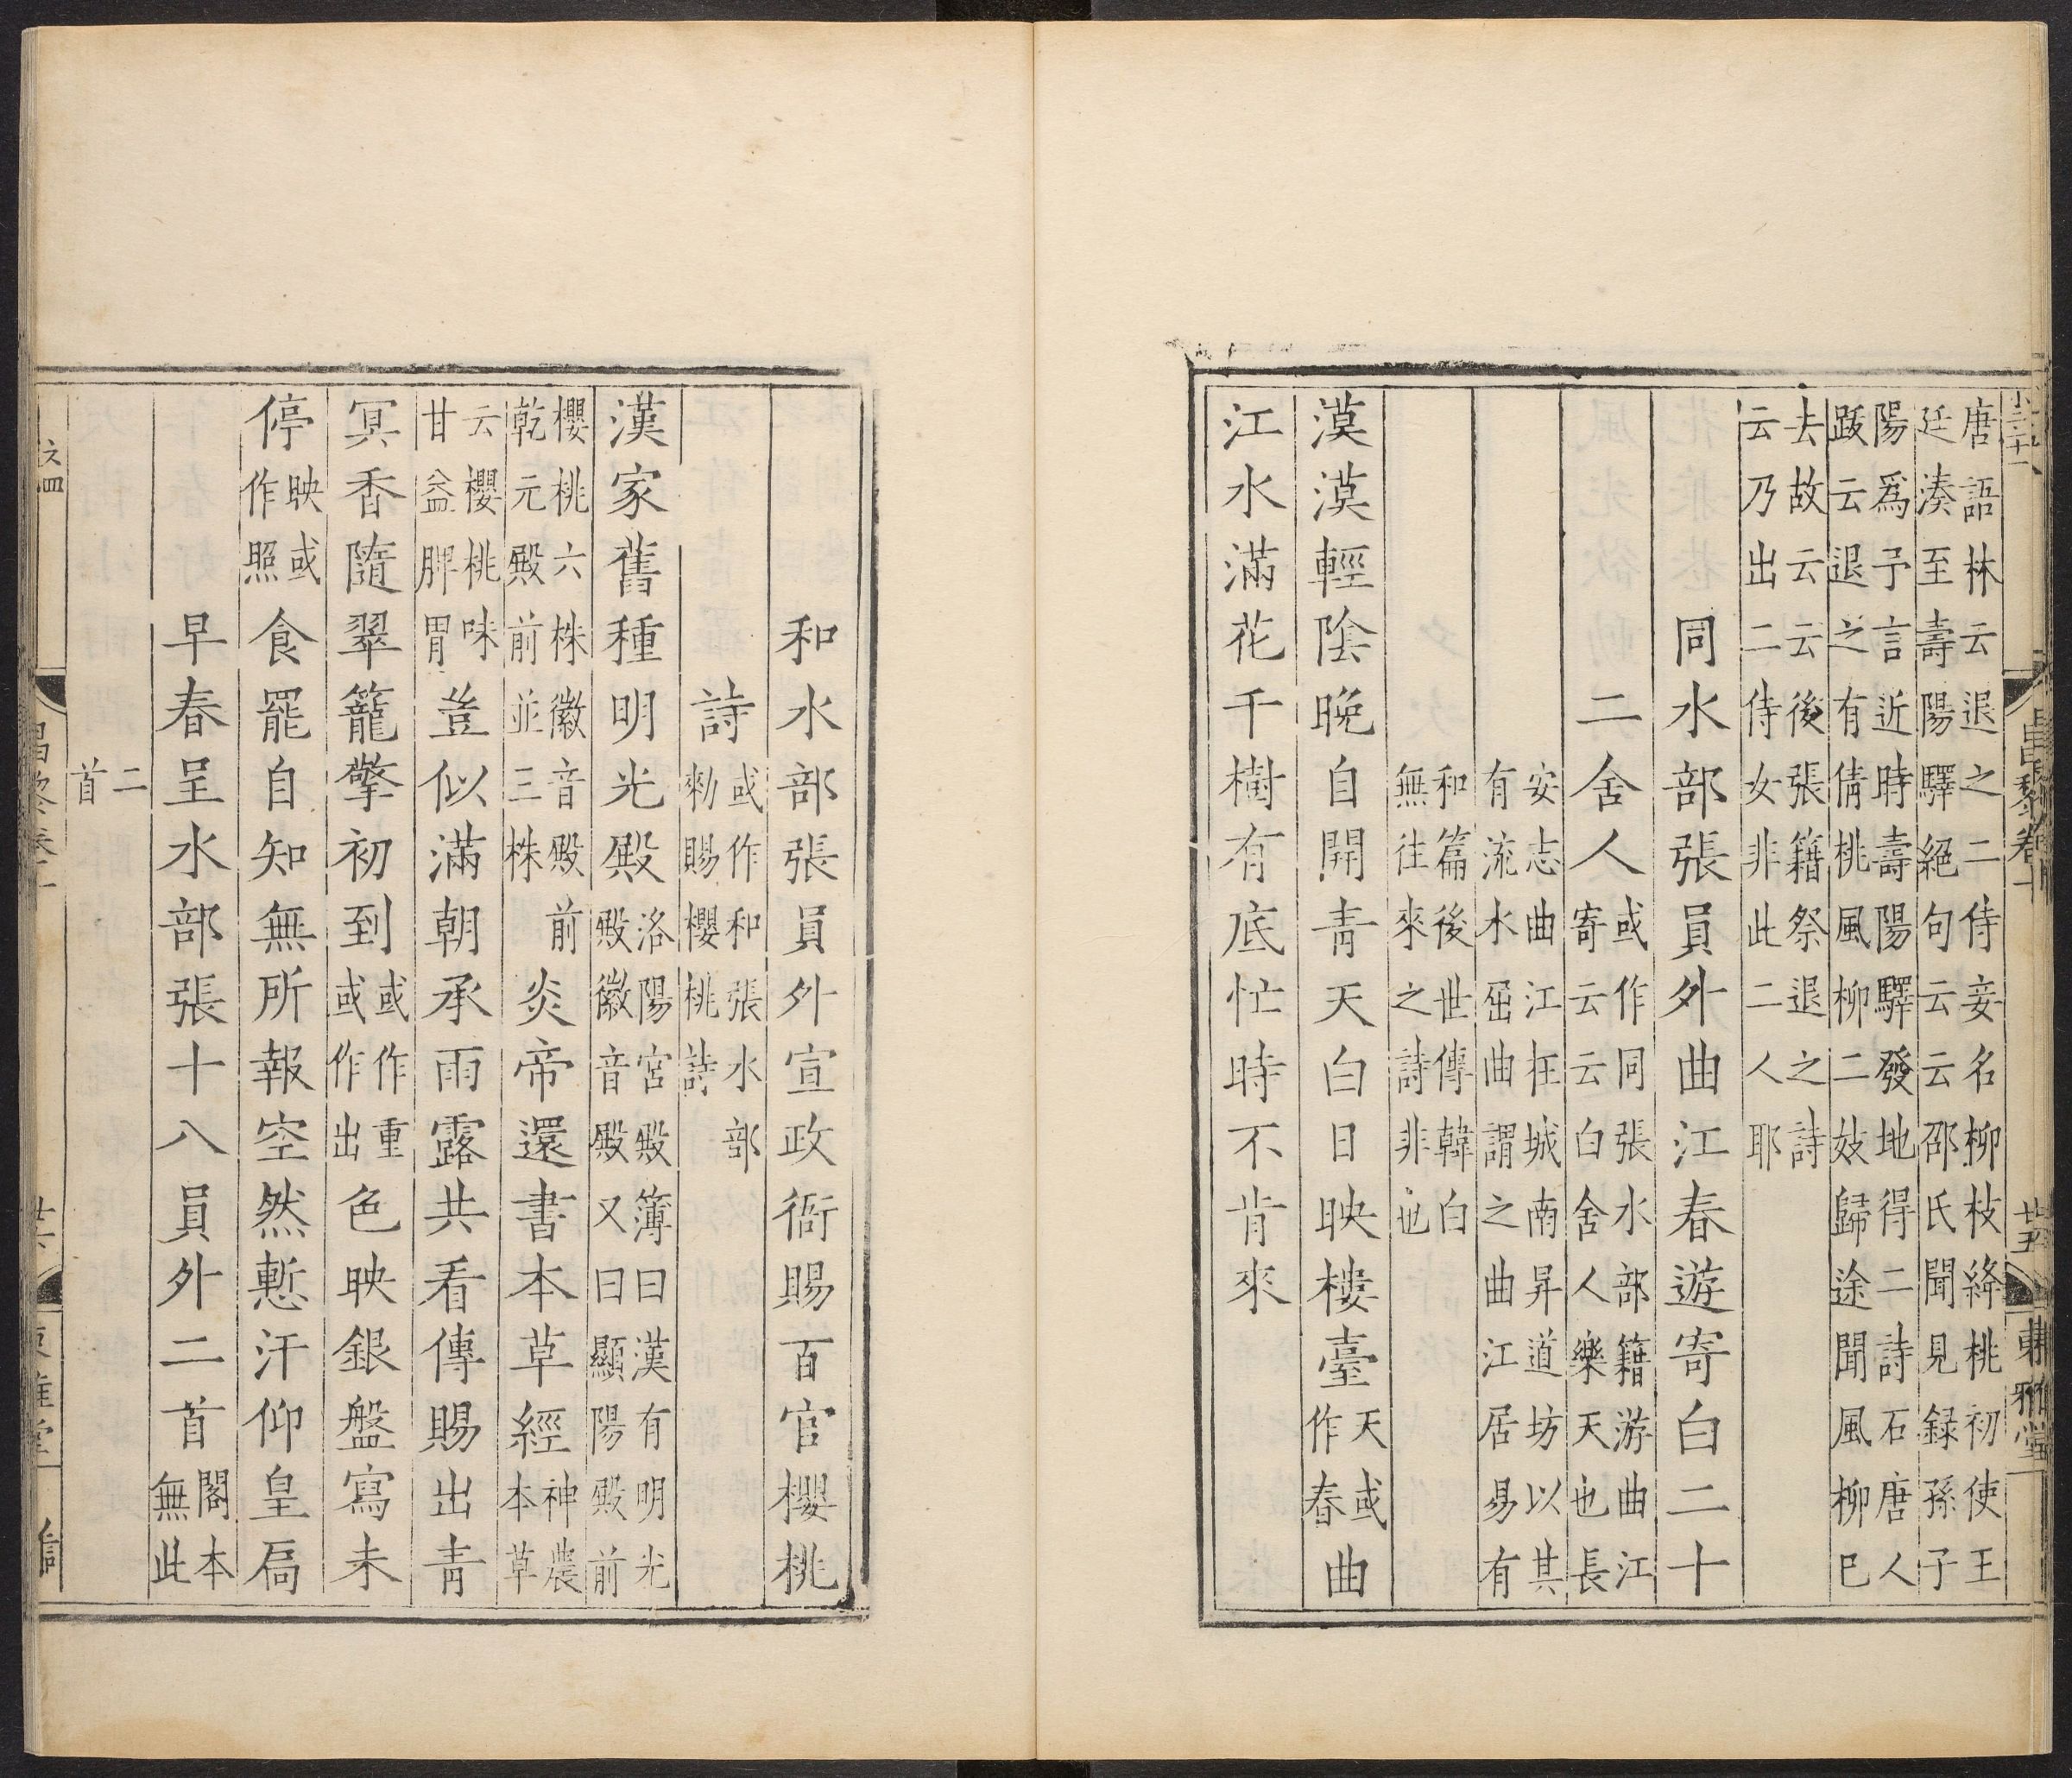 唐語林云退之二侍妾名柳枝絳桃初使王
廷湊至壽陽驛絕句云云邵氏聞見録孫子
陽爲予言近時壽陽驛發地得二詩石唐人
跋云退之有倩桃風柳二妓歸途聞風柳巳
去故云云後張籍祭退之詩
云乃出二侍女非此二人耶
同水部張員外曲江春遊寄白二十
二舍人
或作同張水部籍游曲江
寄云云白舍人樂天也長
安志曲江在城南昇道坊以其
有流水屈曲謂之曲江居易有
和篇後世傳韓白
無往來之詩非也
漠漠輕陰晚自開青天白日映樓臺
天或
作春
曲
江水滿花千樹有底忙時不肯來
昌黎卷十
廿五
東雅堂
和水部張員外宣政衙賜百官櫻桃
詩
或作和張水部
勑賜櫻桃詩
漢家舊種明光殿
洛陽宮殿簿曰漢有明光
殿徽音殿又曰顯陽殿前
櫻桃六株徽音殿前
乾元殿前並三株
炎帝還書本草經
神農
本草
云櫻桃味
甘益脾胃
豈似滿朝承雨露共看傳賜出青
冥香隨翠籠擎初到
或作重
或作出
色映銀盤寫未
停
映或
作照
食罷自知無所報空然慙汗仰皇扃
早春呈水部張十八員外二首
閣本
無此
二
首